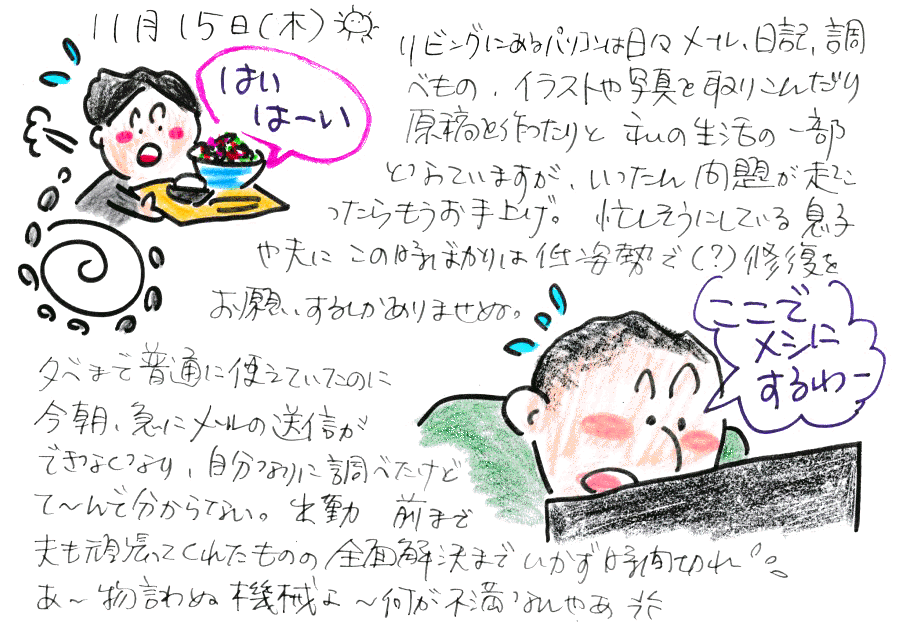 11月15日(木)
はい
はーい
リビングにあるパソコンは日々メール、日記、調
べもの、イラストや写真を取りこんだり
原稿を作ったりと私の生活の一部
となっていますが、いったん問題が起こ
ったらもうお手上げ。忙しそうにしている息子
や夫にこの時ばかりは低姿勢で(?)修復を
お願いするしかありませぬ。
ここで
メシに
するわー
夕べまで普通に使えていたのに
今朝、急にメールの送信が
できなくなり、自分なりに調べたけど
て〜んで分からない。出勤前まで
夫も頑張ってくれたものの全面解決までいかず時間切れ
あ〜物言わぬ機械よ〜何が不満なんやあ